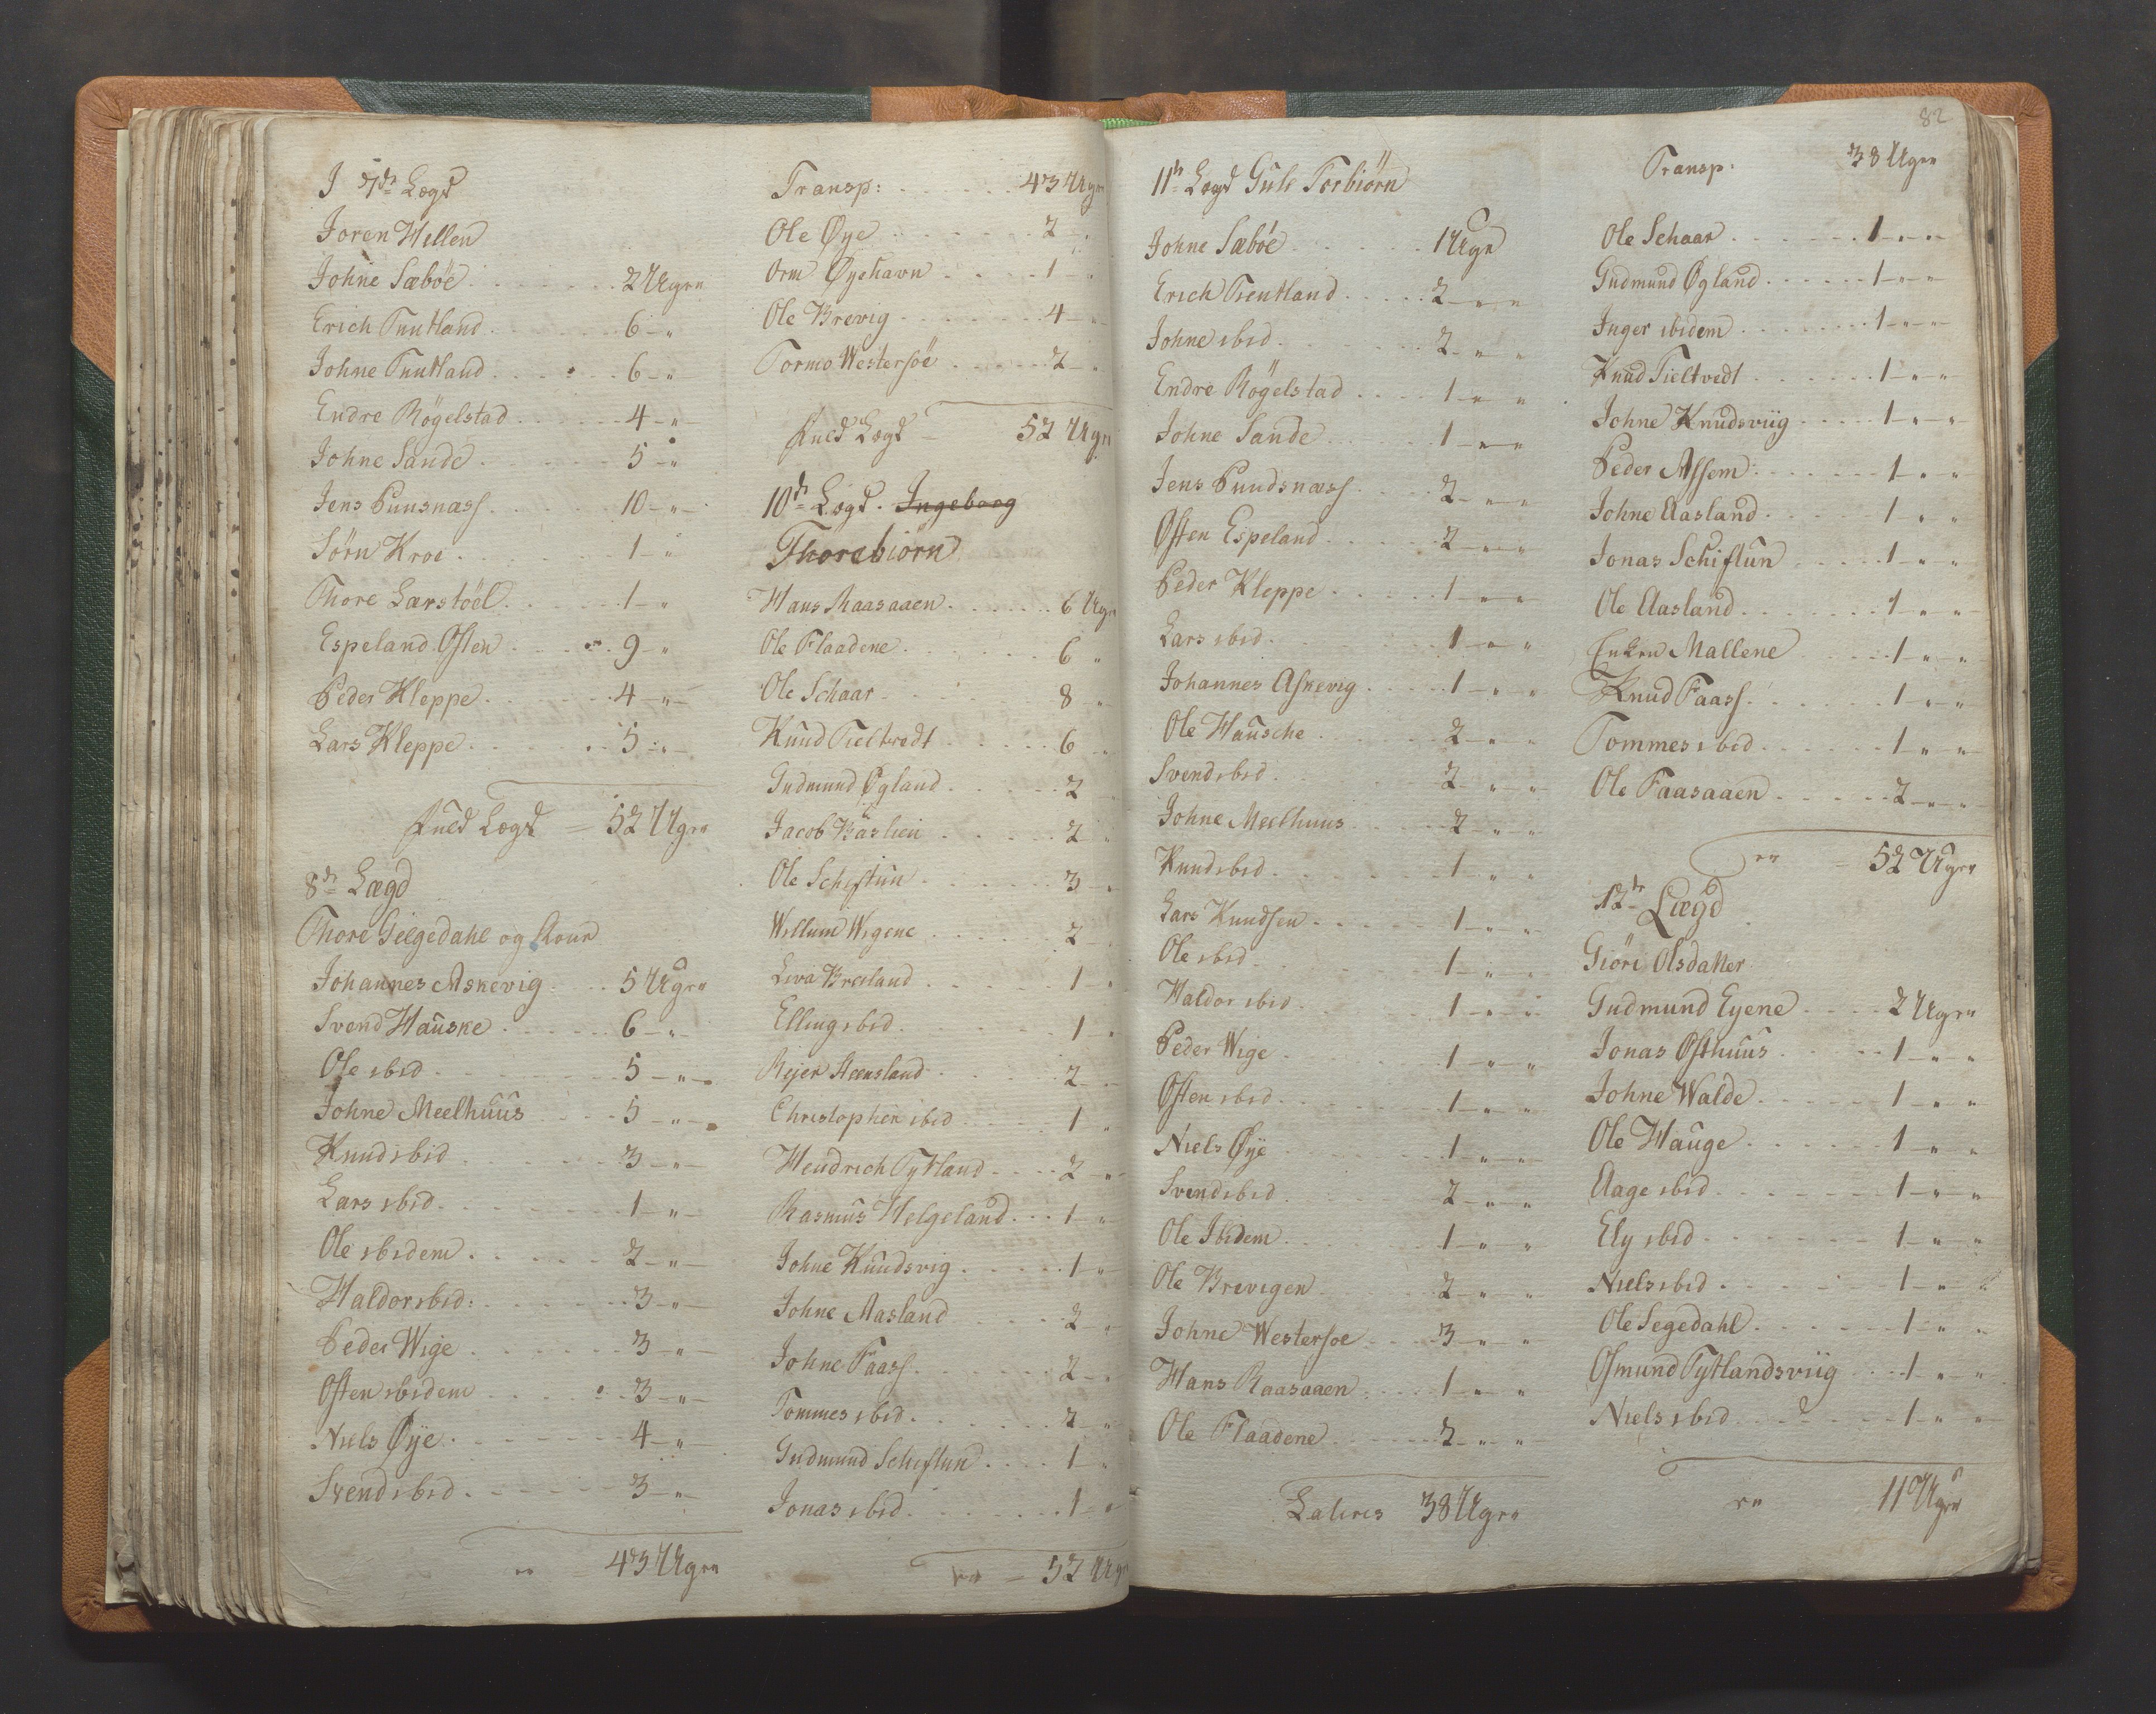 I 7de Lægd
Joren Hellen
Johne Sæböe 2 Ugrs
Erich Tuntland 6 - "
Johne Tuntland 6 - "
Endre Rögelstad 4 - "
Johne Sande 5 - "
Jens Puusnæss 10 - "
Sörn Kroe 1 - "
Thore Lærstöel 1 - "
Espeland Osten 9 - "
Peder Kleppe 4 - "
Lars Kleppe 5 - "
fuld Lægd = 52 Ugrs
8de Lægd
Thore Seegedahl og Kone
Johannes Askevig 5 Ugrs
Svend Hauske 6 - "
Ole ibid 5 - "
Johne Meelhuus 5 - "
Knud ibid 3 - "
Lars ibid 1 - "
Ole ibidem 2 - "
Haldor ibid: 3 - "
Peder Wige 3 - "
Osten ibidem 3 - "
Niels Øye 4 - "
Svend ibid 3 - "
= 43 Ugrs
Transp: 43 Ugrs
Ole Øye 2 - "
Orm Øyehavn 1 - "
Ole Brevig 4 - "
Tormo Westersöe 2 - "
fuld Lægd - 52 Ugrs
10de Lægd. Ingeborg
Thorebiörn
Hans Raasaaen 6 Ugrs
Ole Flaadene 6 "
Ole Schaar 8 "
Knud Tieltvedt 6 "
Gudmund Ögland 2
Jacob Baslien 2 "
Ole Schiftun 3 - "
Willum Wigene 2 - "
Liva Breiland 1 - "
Elling ibid 1 "
Reier Steensland 2 - "
Christopher ibid 1 "
Hendrich Tytland 2 - "
Rasmus Helgeland 1 - "
Johne Knudsvig 1 "
Johne Aasland 2 - "
Johne Faass 2 - "
Tommes ibid 2 - "
Gudmund Schiftun 1 - "
Jonas ibid 1 - "
- 52 Ugrs
82
11te Lægd Gule Torbiörn
Johne Sæböe 1 Ugr
Erich Tuntland 2 - " "
Johne ibid 2 - " "
Endre Rögelstad 1 - " "
Johne Sande 1 - " "
Jens Puudsnæss 2 - " "
Osten Espeland 2 - " "
Peder Kleppe 1 - " "
Lars ibid 1 - " "
Johannes Askevig 1 - " "
Ole Hausche 2 - " "
Svend ibid 2 - " "
Johne Meelhuus 2 - " "
Knud ibid 1 - " "
Lars Knudsen 1 - " "
Ole ibid 1 - " "
Haldor ibid 1 - " "
Peder Wige 1 - " "
Osten ibid 1 - " "
Niels Øye 1 - " "
Svend ibid 2 - " "
Ole Ibidem 1 - " "
Ole Brevigen 2 - " "
Johne Westersoe 3 - " "
Hans Raasaaen 1 - " "
Ole Flaadene 2 - " "
Lateris 38 Ugrs
Transp: 38 Ugrs
Ole Schaar 1 - " "
Gudmund Øgland 1 - " "
Inger ibidem 1 - " "
Knud Tieltvedt 1 - " "
Johne Knudsviig 1 - " "
Peder Assem 1 - " "
Johne Aasland 1 - " "
Jonas Schiftun 1 - " "
Ole Aasland 1 - " "
Enken Mallene 1 - " "
Knud Faass 1 - " "
Tommes ibid 1 - " "
Ole Faasaaen 2 - " "
- 52 Ugrs
12te Lægd
Giöri Olsdatter
Gudmund Eyene 2 Ugrs
Jonas Østhuus 1 - " "
Johne Walde 1 - " "
Ole Hauge 1 - " "
Aage ibid 1 - " "
Ely ibid 1 - " "
Niels ibid 1 - " "
Ole Segedahl 1 - " "
Osmund Tytlandsviig 1 - " "
Niels ibid 1 - " "
11 Ugrs